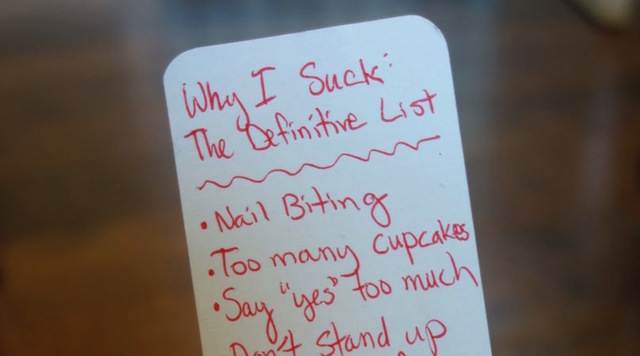 Why I Suck:
The Definitive List
• Nail Biting
• Too many cupcakes
• Say "yes" too much
Don't stand up